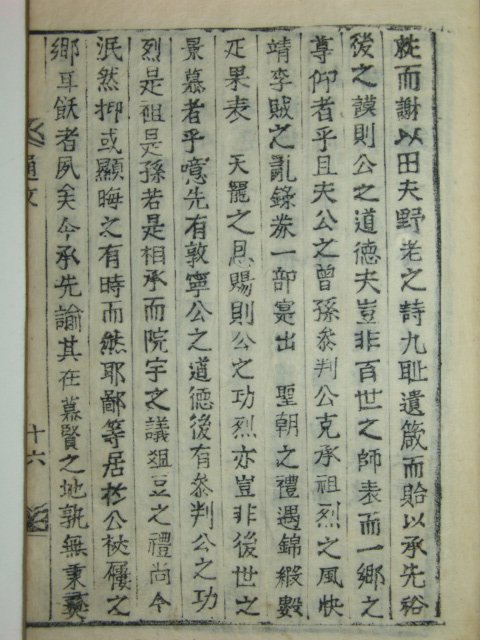 而謝以田夫野老之詩九耻遺箴而貽以承先裕
後之謨則公之道德夫豈非百世之師表而一鄉之
尊仰者乎且夫公之曾孫叅判公克承祖烈之風快
靖李賊之亂錄券一部寔出 聖朝之禮遇錦緞數
疋果表 天寵之恩賜則公之功烈亦豈非後世之
景慕者乎噫先有敦寧公之道德後有叅判公之功
烈是祖是孫若是相承而院宇之議俎豆之禮尚今
泯然抑或顯晦之有時而然耶鄙等居於公杖屨之
鄉耳飫者夙矣今承先諭其在慕賢之地孰無秉彝
通文 十六